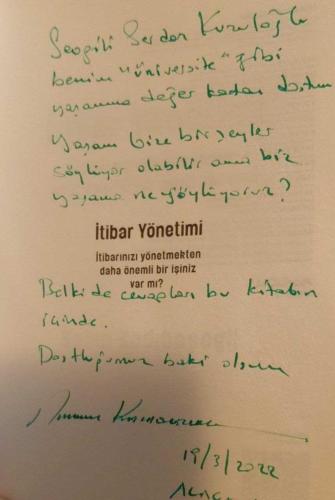 Sevgili Serdar Kuzuloğlu
benim "üniversite" gibi
yaşamıma değer katan dostum
Yaşam bize bir şeyler
söylüyor olabilir ama biz
yaşama ne söylüyoruz?
İtibar Yönetimi
İtibarınızı yönetmekten
daha önemli bir işiniz
var mı?
Belki de cevapları bu kitabın
içinde.
Dostluğumuz baki olsun
19/3/2022